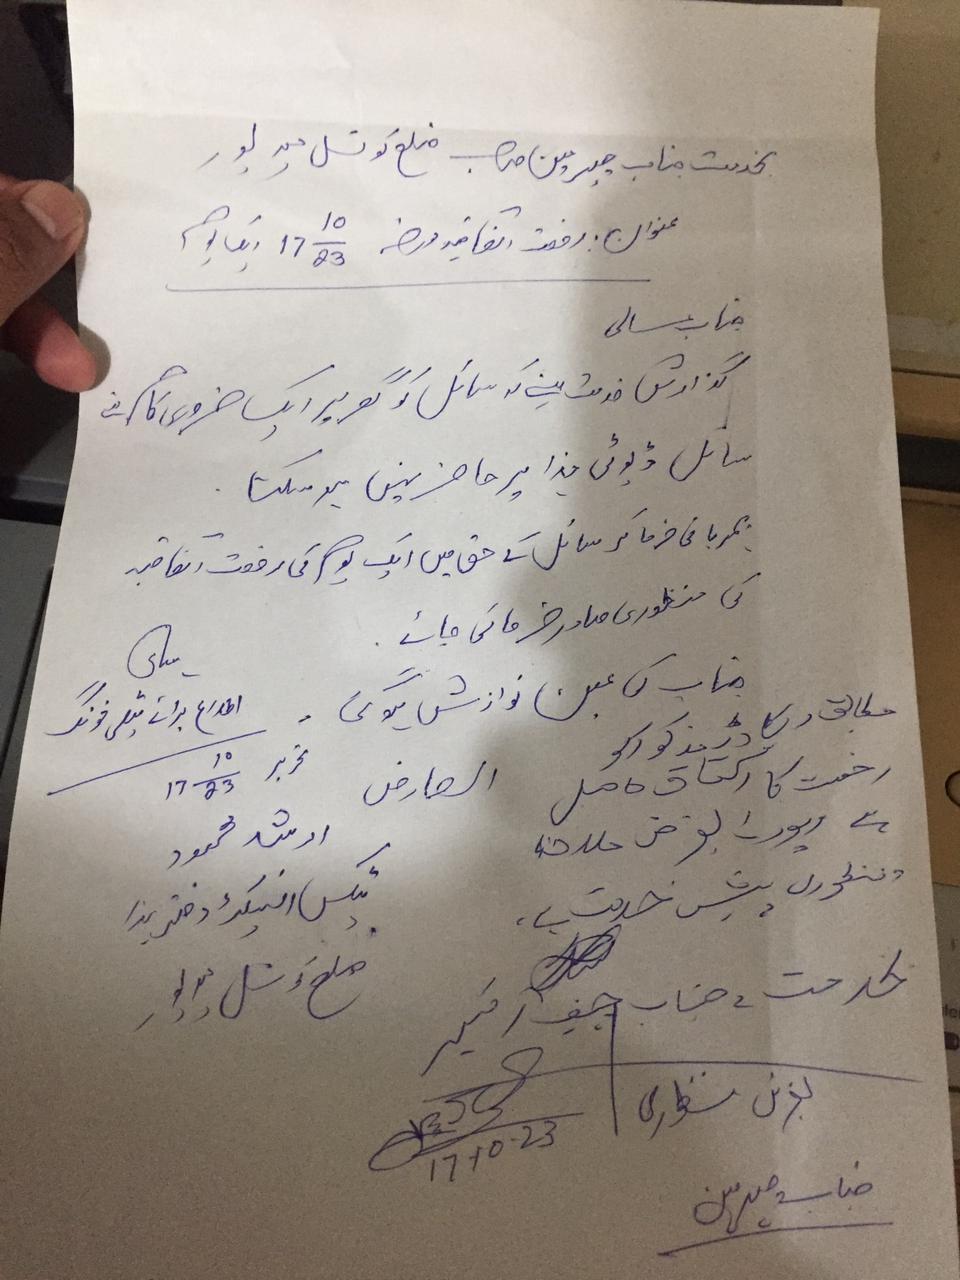 بخدمت جناب چیئرمین صاحب ضلع کونسل میرپور
عنوان: رخصت اتفاقیہ مورخہ 17 10/23 ایک یوم
جناب عالی
گذارش خدمت ہے کہ سائل کو گھر پر ایک ضروری کام ہے
سائل ڈیوٹی ہذا پر حاضر نہیں ہو سکتا .
مہربانی فرما کر سائل کے حق میں ایک یوم کی رخصت اتفاقیہ
کی منظوری صادر فرمائی جائے .
جناب کی عین نوازش ہوگی .
اطلاع برائے ٹیلی فونک
تحریر 17 10/23
العارض
ارشد محمود
ٹیکس انسپکٹر دفتر ہذا
ضلع کونسل میرپور
مطابق ریکارڈ مذکور کو
رخصت کا استحقاق حاصل
ہے رپورٹ بغرض ملاحظہ
و منظوری پیش خدمت ہے،
بخدمت جناب چیف آفیسر
بغرض منظوری
17-10-23
جناب چیئرمین